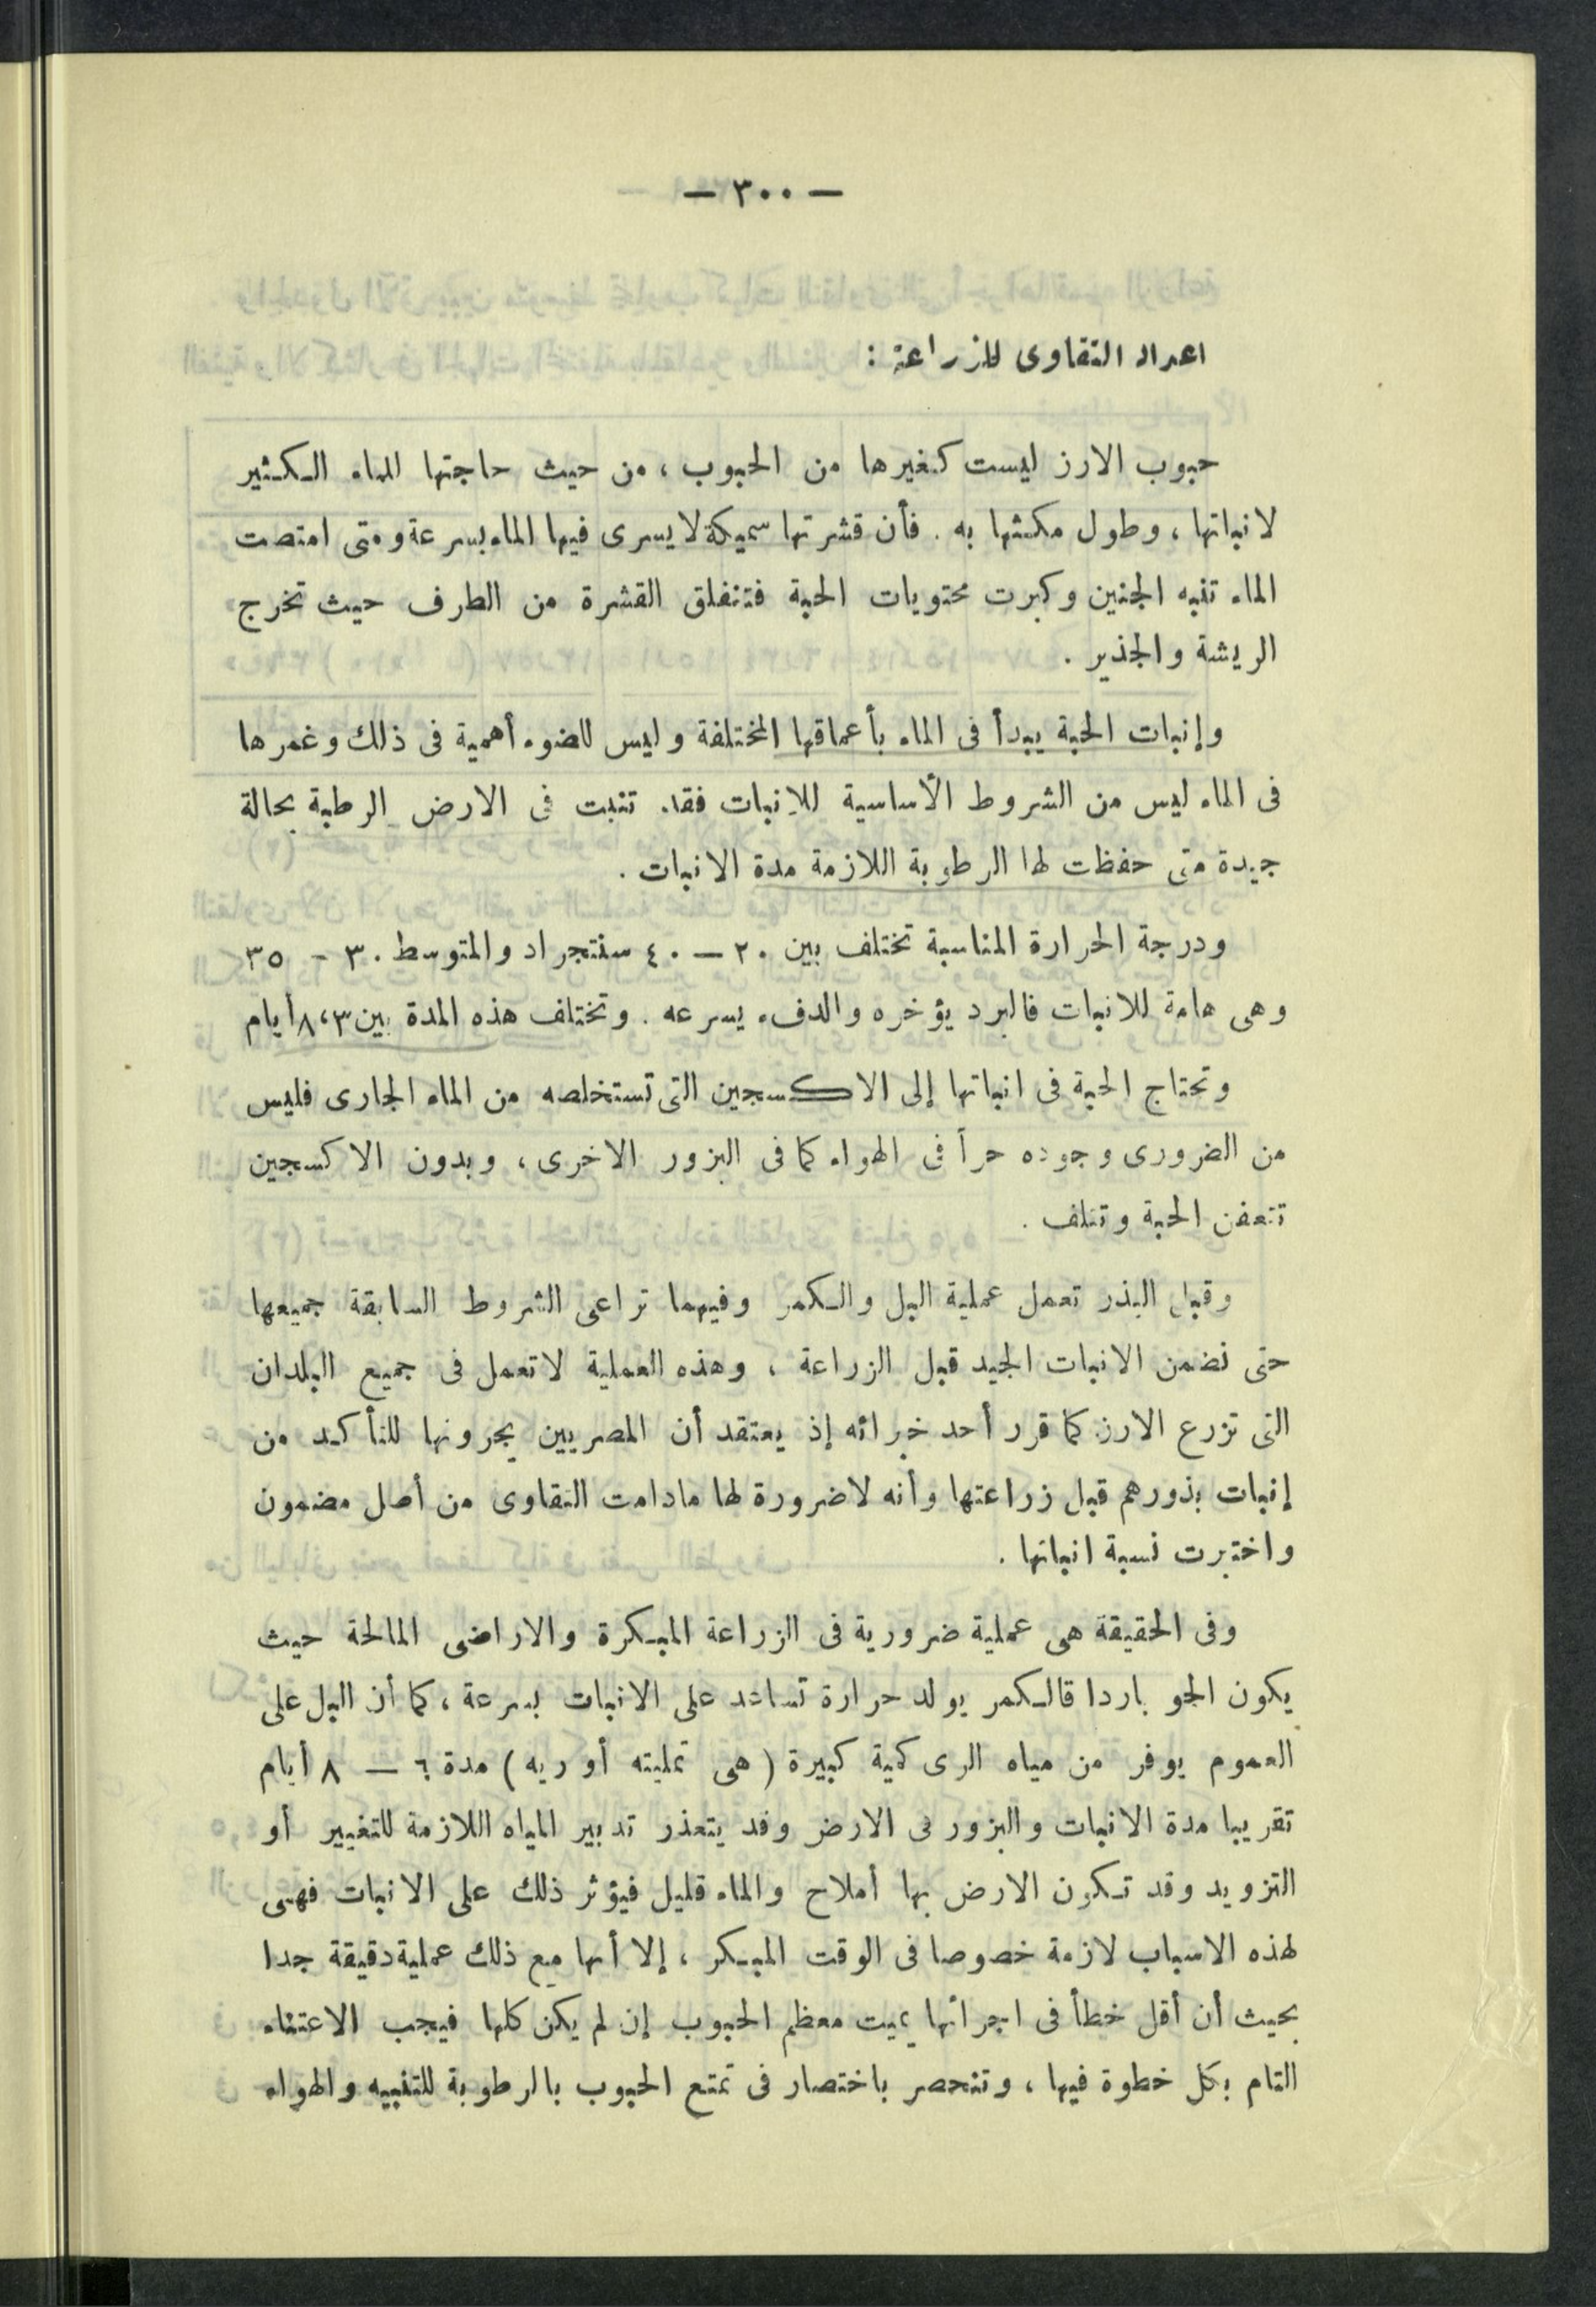 — ٣٠٠ —
اعداد التقاوى للزراعة :
حبوب الارز ليست كغيرها من الحبوب ، من حيث حاجتها للماء الكثير
لانباتها ، وطول مكثها به . فأن قشرتها سميكة لا يسرى فيها الماء بسرعة ومتى امتصت
الماء تنبه الجنين وكبرت محتويات الحبة فتنفلق القشرة من الطرف حيث تخرج
الريشة والجذير .
وإنبات الحبة يبدأ فى الماء بأعماقها المختلفة وليس للضوء أهمية فى ذلك وغمرها
فى الماء ليس من الشروط الأساسية للانبات فقد تنبت فى الارض الرطبة بحالة
جيدة متى حفظت لها الرطوبة اللازمة مدة الانبات .
ودرجة الحرارة المناسبة تختلف بين ٢٠ — ٤٠ سنتجراد والمتوسط ٣٠ - ٣٥
وهى هامة للانبات فالبرد يؤخره والدفء يسرعه . وتختلف هذه المدة بين ٣ ، ٨ أيام
وتحتاج الحبة فى انباتها إلى الاكسجين التى تستخلصه من الماء الجارى فليس
من الضرورى وجوده حراً فى الهواء كما فى البزور الاخرى ، وبدون الاكسجين
تتعفن الحبة وتتلف .
وقبل البذر تعمل عملية البل والكمر وفيهما تراعى الشروط السابقة جميعها
حتى نضمن الانبات الجيد قبل الزراعة ، وهذه العملية لا تعمل فى جميع البلدان
التى تزرع الارز كما قرر أحد خبرائه إذ يعتقد أن المصريين يجرونها للتأكد من
إنبات بذورهم قبل زراعتها وأنه لا ضرورة لها مادامت التقاوى من أصل مضمون
واختبرت نسبة انباتها .
وفى الحقيقة هى عملية ضرورية فى الزراعة المبكرة والاراضى المالحة حيث
يكون الجو باردا فالكمر يولد حرارة تساعد على الانبات بسرعة ، كما أن البل على
العموم يوفر من مياه الرى كمية كبيرة ( هى تمليته أو ريه ) مدة ٦ — ٨ أيام
تقريبا مدة الانبات والبزور فى الارض وقد يتعذر تدبير المياه اللازمة للتغيير أو
التزويد وقد تكون الارض بها أملاح والماء قليل فيؤثر ذلك على الانبات فهى
لهذه الاسباب لازمة خصوصا فى الوقت المبكر ، إلا أنها مع ذلك عملية دقيقة جدا
بحيث أن أقل خطأ فى اجرائها يميت معظم الحبوب إن لم يكن كلها فيجب الاعتناء
التام بكل خطوة فيها ، وتنحصر باختصار فى تمتع الحبوب بالرطوبة للتنبيه والهواء